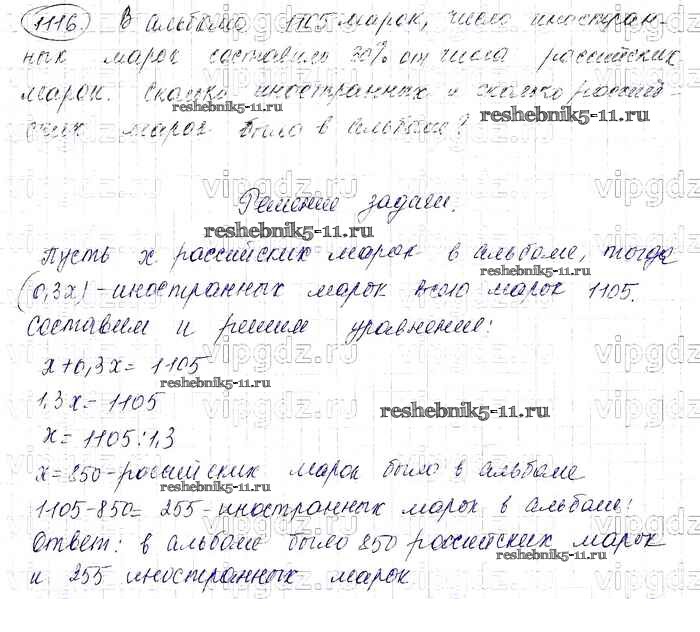 1116. В альбоме 1105 марок, число иностран-
ных марок составило 30% от числа российских
марок. Сколько иностранных и сколько россий-
reshebnik5-11.ru
ских марок было в альбоме?
reshebnik5-11.ru
vipgdz.ru vipgdz.ru vipgdz.ru
Решение задачи.
reshebnik5-11.ru
Пусть x российских марок в альбоме, тогда
(0,3x) - иностранных марок. Всего марок 1105.
Составим и решим уравнение:
x+0,3x= 1105
reshebnik5-11.ru
1,3x= 1105
reshebnik5-11.ru
x= 1105:1,3
x=850-российских марок было в альбоме
reshebnik5-11.ru
1105-850= 255-иностранных марок в альбоме!
Ответ: в альбоме было 850 российских марок
reshebnik5-11.ru
и 255 иностранных марок.